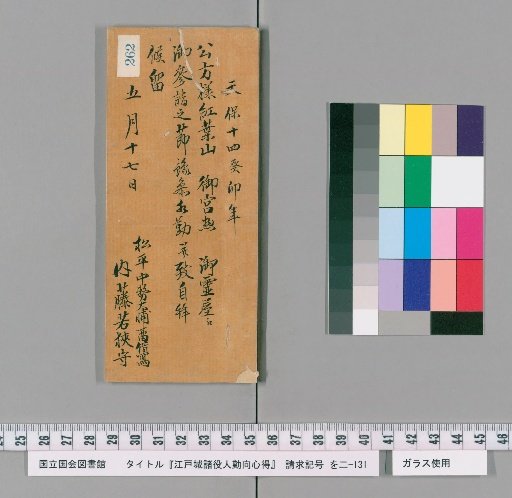 262
天保十四癸卯年
公方様紅葉山 御宮惣 御霊屋江
御参詣之節豫参相勤並致自拝
候留
五月十七日
松平中務大輔
内藤若狭守
25 26 27 28 29 30 31 32 33 34 35 36 37 38 39 40 41 42 43 44 45 46
国立国会図書館 タイトル『江戸城諸役人勤向心得』 請求記号 を二-131
ガラス使用